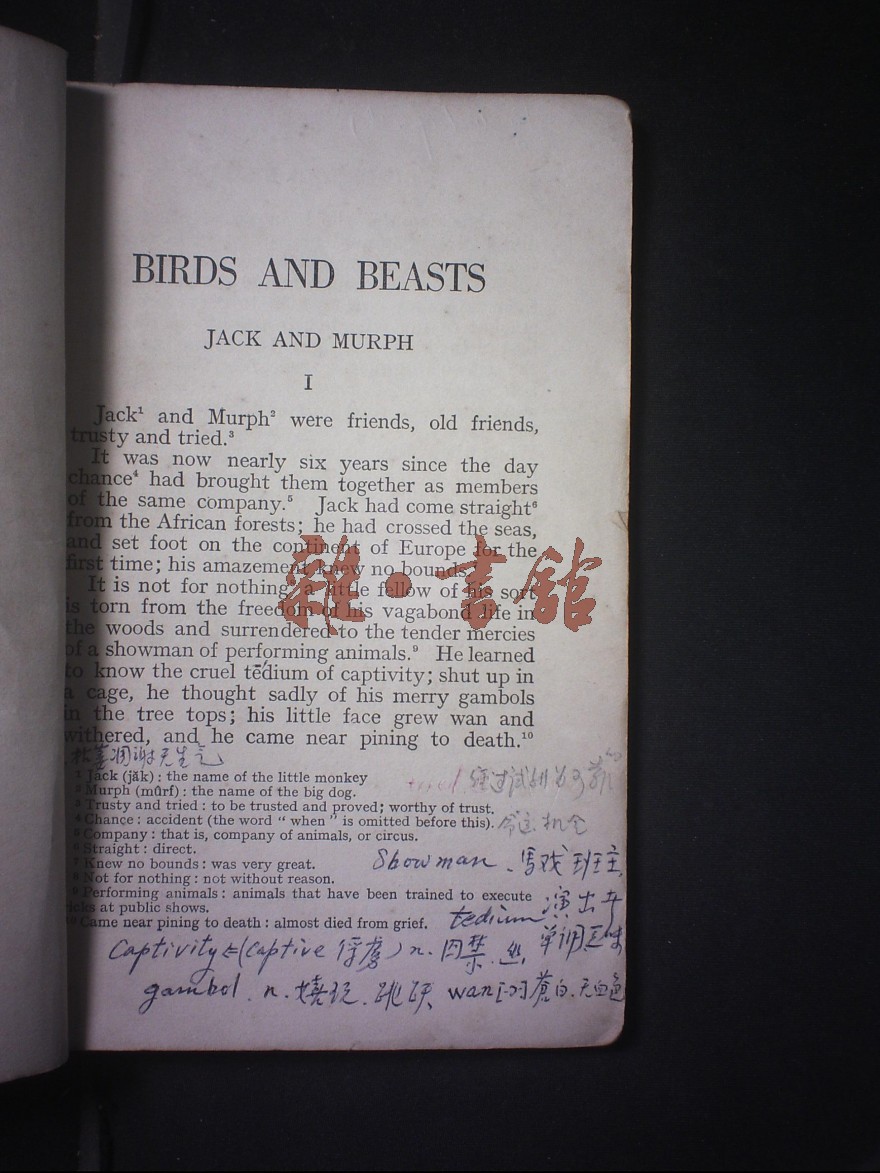 BIRDS AND BEASTS
JACK AND MURPH
I
Jack¹ and Murph² were friends, old friends,
trusty and tried.³
It was now nearly six years since the day
chance⁴ had brought them together as members
of the same company.⁵ Jack had come straight⁶
from the African forests; he had crossed the seas,
and set foot on the continent of Europe for the
first time; his amazement knew no bounds.
It is not for nothing a little fellow of his sort
is torn from the freedom of his vagabond life in
the woods and surrendered to the tender mercies
of a showman of performing animals.⁹ He learned
to know the cruel tēdium of captivity; shut up in
a cage, he thought sadly of his merry gambols
in the tree tops; his little face grew wan and
withered, and he came near pining to death.¹⁰
枯萎凋谢无生气
¹ Jack (jăk) : the name of the little monkey
² Murph (mûrf) : the name of the big dog.
³ Trusty and tried : to be trusted and proved; worthy of trust.
⁴ Chance : accident (the word “ when ” is omitted before this).
⁵ Company : that is, company of animals, or circus.
⁶ Straight : direct.
⁷ Knew no bounds : was very great.
⁸ Not for nothing : not without reason.
⁹ Performing animals : animals that have been trained to execute
tricks at public shows.
¹⁰ Came near pining to death : almost died from grief.
经过试
机会
Showman 马戏班主
演出
tedium 单调
Captivity (captive 俘虏) n. 囚禁
gambol n. 嬉玩 跳跃 wan 苍白 无血色
雜·書館